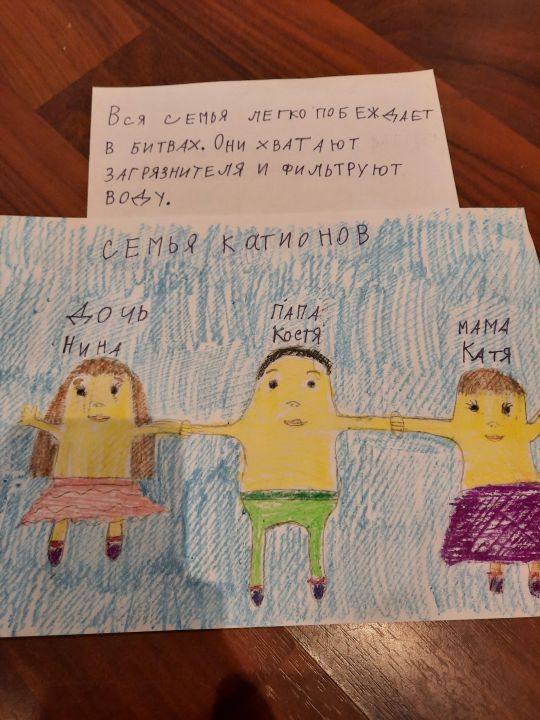 Вся семья легко побеждает
в битвах. Они хватают
загрязнителя и фильтруют
воду.
СЕМЬЯ КАТИОНОВ
ДОЧЬ
НИНА
ПАПА
КОСТЯ
МАМА
КАТЯ